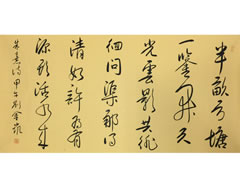 半畝方塘
一鑒开天
光雲影共徘
徊问渠那得
清如許為有
源頭活水来
朱熹诗甲午